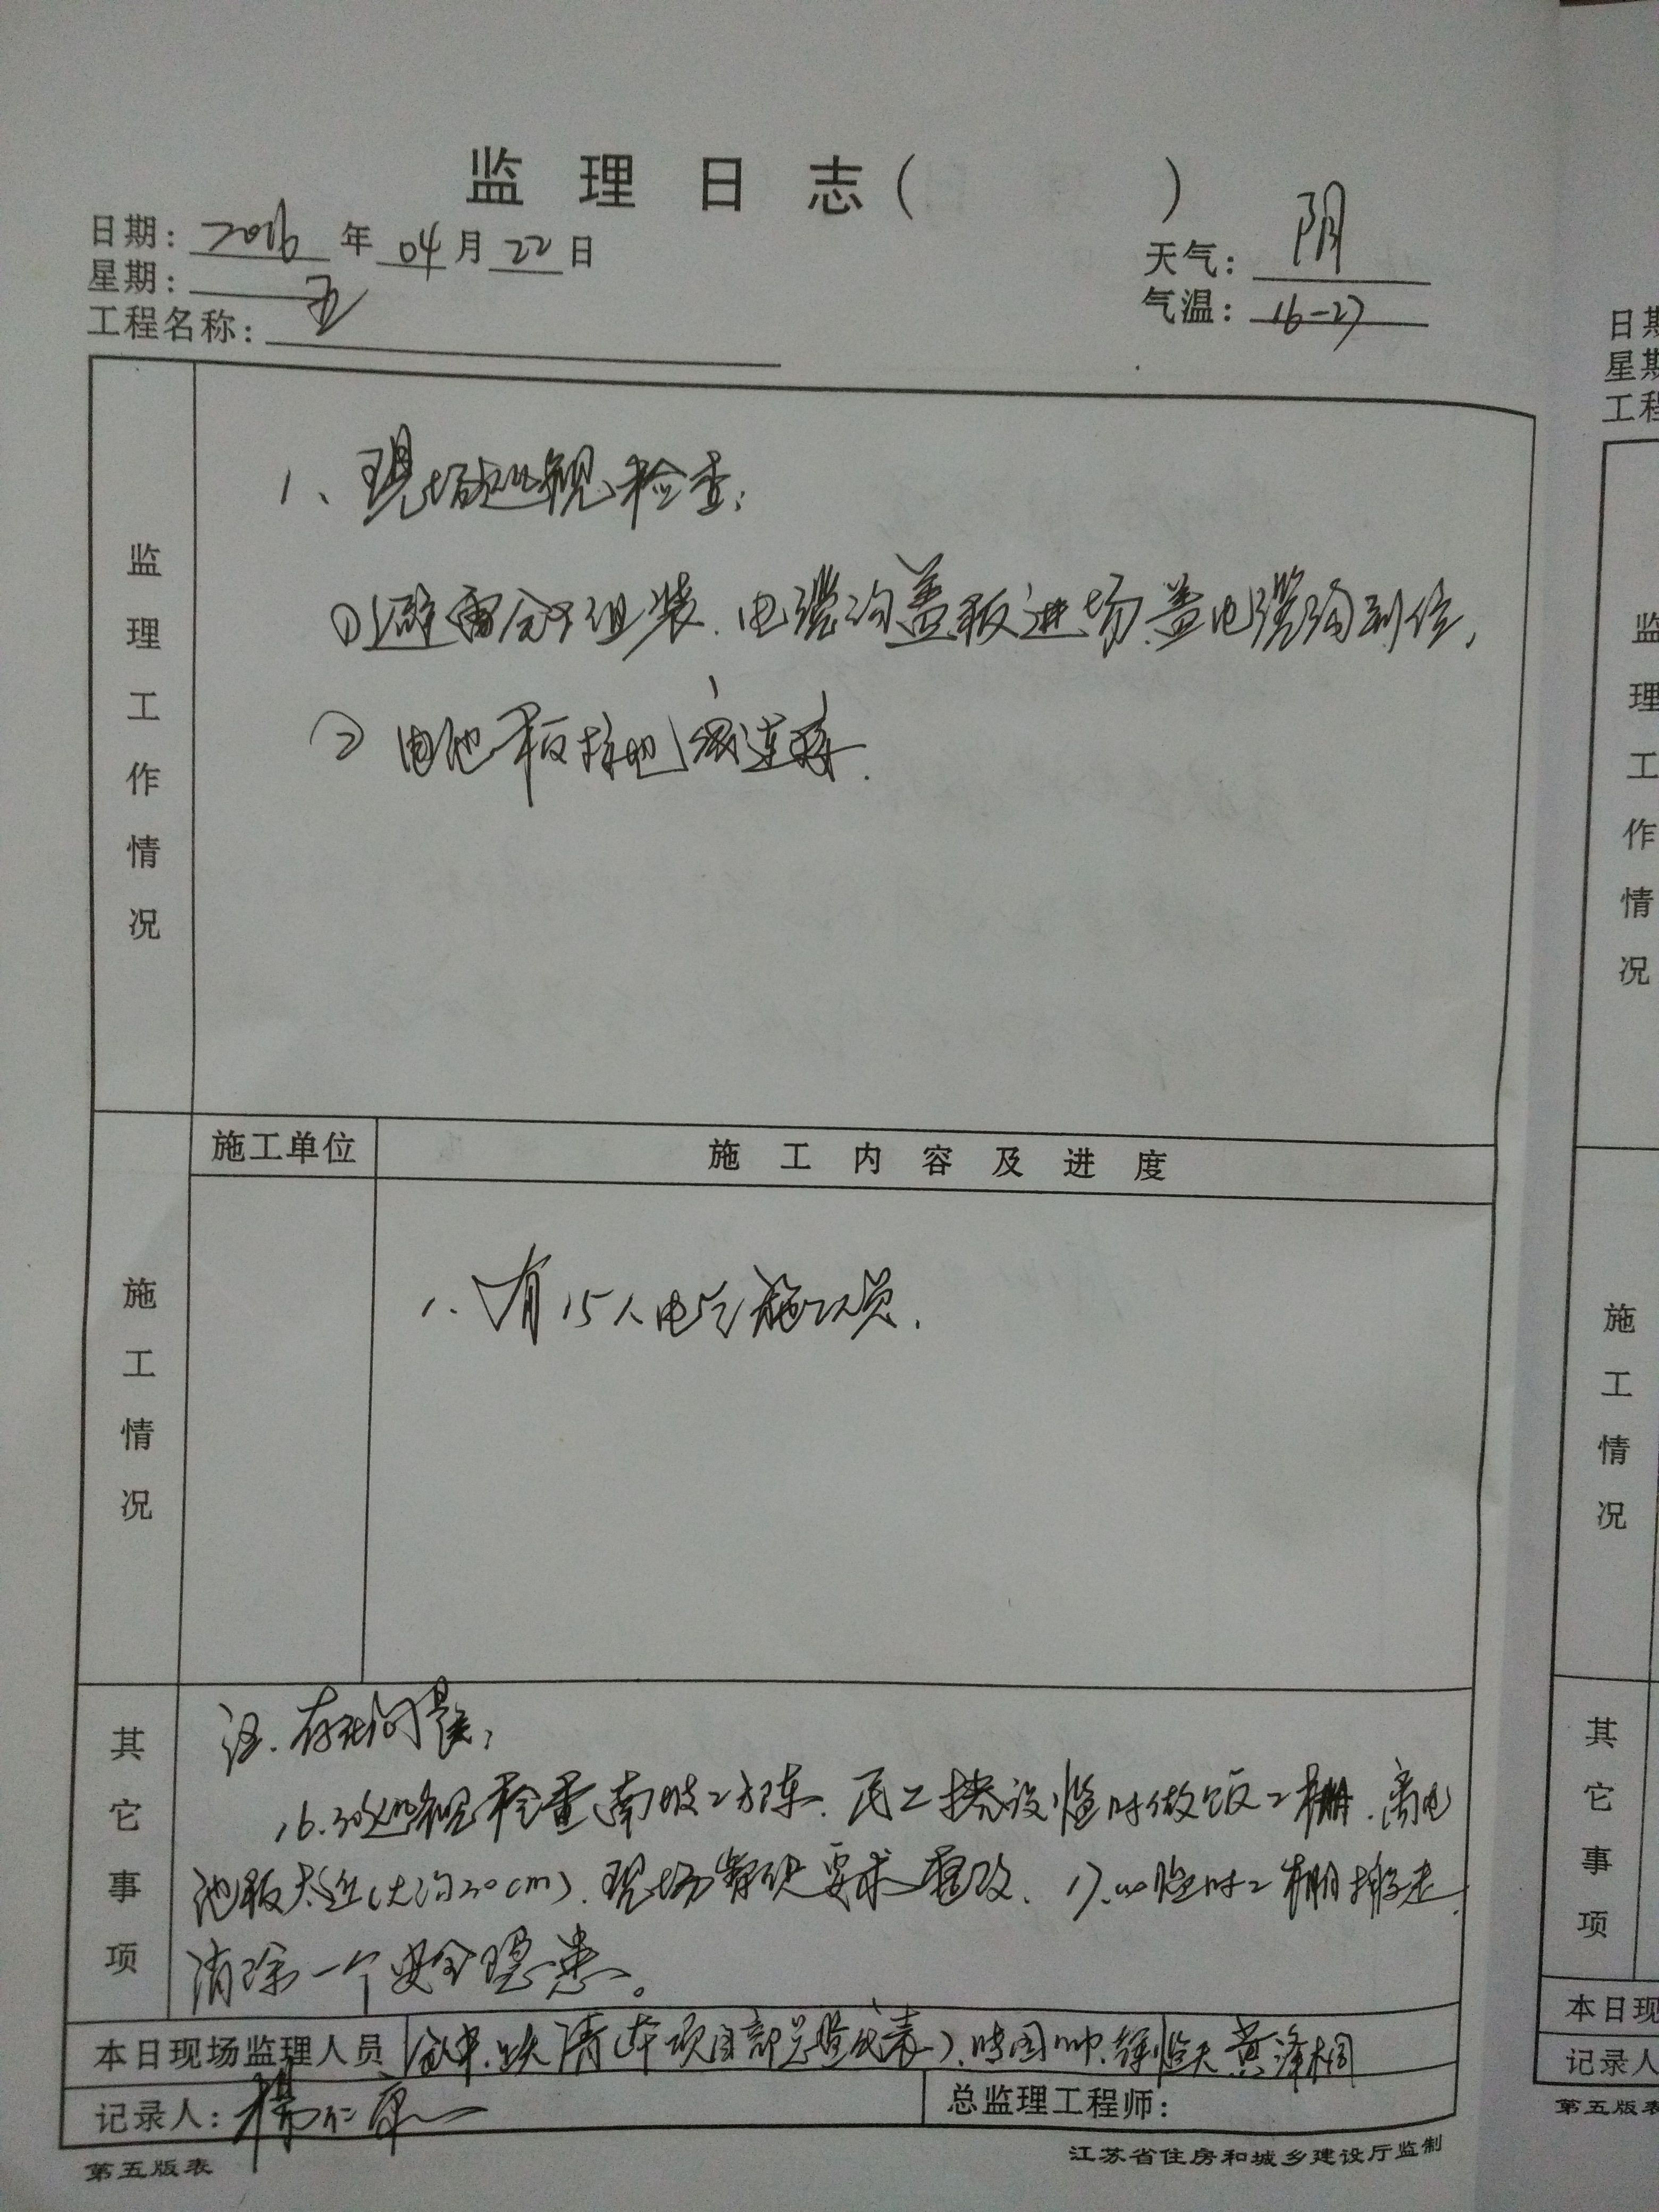 监理日志（ ）
日期：2016年04月22日
天气：阴
星期：五
气温：16-27
工程名称：
监理工作情况
1、现场巡视检查：
①避雷分子组装、电缆沟盖板进场、盖电缆沟到位，
② 电池板接地线连接.
施工情况
施工单位
施工内容及进度
1、有15人电气施工人员.
其它事项
注、存在问题：
16:30巡视检查南坡工程、民工搭设临时做饭工棚、离电
池板太近（大约30cm）、现场要求整改、17:00临时工棚搬走、
消除一个安全隐患。
本日现场监理人员 清（本项目部总监代表）、黄泽桐
记录人：杨仁
总监理工程师：
第五版表
江苏省住房和城乡建设厅监制
日期
星期
工程
监理工作情况
施工情况
其它事项
本日现
记录人
第五版表